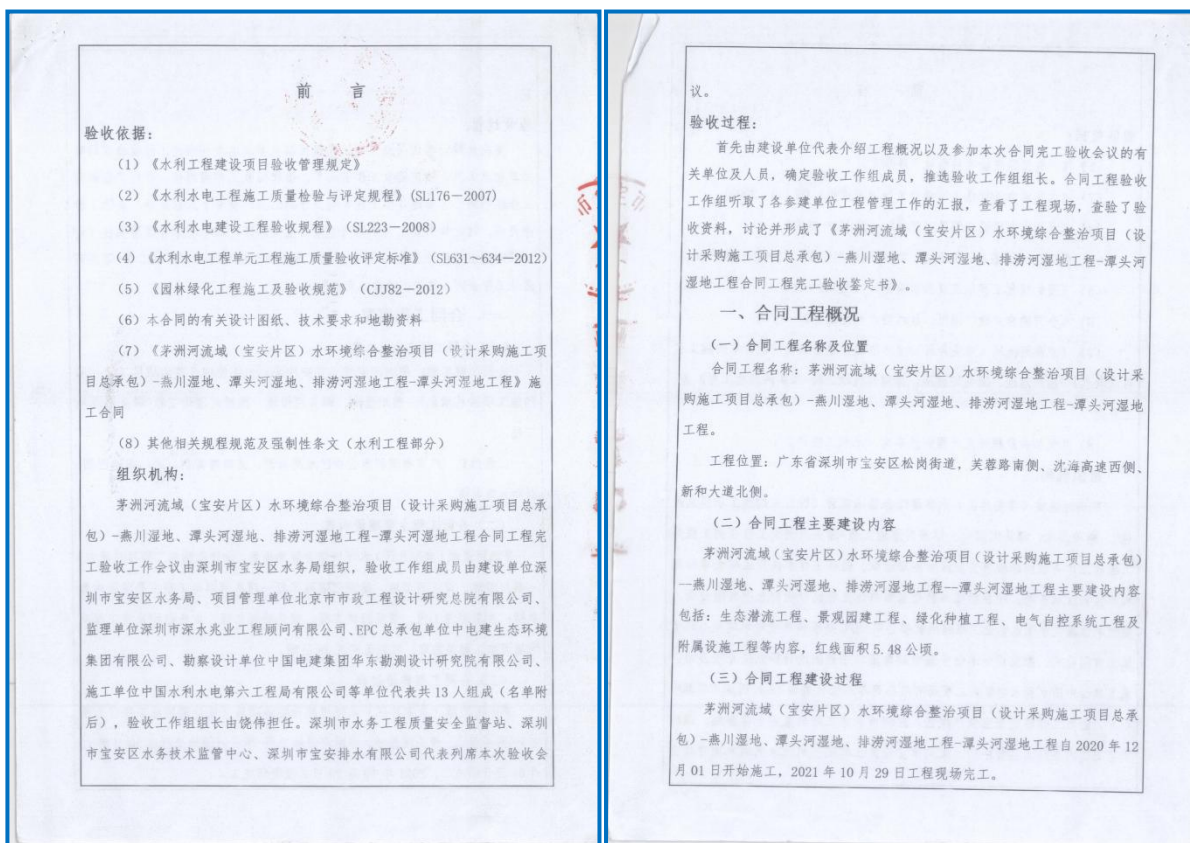 前 言
验收依据:
(1)《水利工程建设项目验收管理规定》
(2)《水利水电工程施工质量检验与评定规程》(SL176-2007)
(3)《水利水电建设工程验收规程》(SL223-2008)
(4)《水利水电工程单元工程施工质量验收评定标准》(SL631~634-2012)
(5)《园林绿化工程施工及验收规范》(CJJ82-2012)
(6)本合同的有关设计图纸、技术要求和地勘资料
(7)《茅洲河流域(宝安片区)水环境综合整治项目(设计采购施工项
目总承包)-燕川湿地、潭头河湿地、排涝河湿地工程-潭头河湿地工程》施
工合同
(8)其他相关规程规范及强制性条文(水利工程部分)
组织机构:
茅洲河流域(宝安片区)水环境综合整治项目(设计采购施工项目总承
包)-燕川湿地、潭头河湿地、排涝河湿地工程-潭头河湿地工程合同工程完
工验收工作会议由深圳市宝安区水务局组织,验收工作组成员由建设单位深
圳市宝安区水务局、项目管理单位北京市市政工程设计研究总院有限公司、
监理单位深圳市深水兆业工程顾问有限公司、EPC总承包单位中电建生态环境
集团有限公司、勘察设计单位中国电建集团华东勘测设计研究院有限公司、
施工单位中国水利水电第六工程局有限公司等单位代表共13人组成(名单附
后),验收工作组组长由饶伟担任。深圳市水务工程质量安全监督站、深圳
市宝安区水务技术监管中心、深圳市宝安排水有限公司代表列席本次验收会
议。
验收过程:
首先由建设单位代表介绍工程概况以及参加本次合同完工验收会议的有
关单位及人员,确定验收工作组成员,推选验收工作组组长。合同工程验收
工作组听取了各参建单位工程管理工作的汇报,查看了工程现场,查验了验
收资料,讨论并形成了《茅洲河流域(宝安片区)水环境综合整治项目(设
计采购施工项目总承包)-燕川湿地、潭头河湿地、排涝河湿地工程-潭头河
湿地工程合同工程完工验收鉴定书》。
一、合同工程概况
(一)合同工程名称及位置
合同工程名称:茅洲河流域(宝安片区)水环境综合整治项目(设计采
购施工项目总承包)-燕川湿地、潭头河湿地、排涝河湿地工程-潭头河湿地
工程。
工程位置:广东省深圳市宝安区松岗街道,芙蓉路南侧、沈海高速西侧、
新和大道北侧。
(二)合同工程主要建设内容
茅洲河流域(宝安片区)水环境综合整治项目(设计采购施工项目总承包)
—燕川湿地、潭头河湿地、排涝河湿地工程—潭头河湿地工程主要建设内容
包括:生态潜流工程、景观园建工程、绿化种植工程、电气自控系统工程及
附属设施工程等内容,红线面积5.48公顷。
(三)合同工程建设过程
茅洲河流域(宝安片区)水环境综合整治项目(设计采购施工项目总承
包)-燕川湿地、潭头河湿地、排涝河湿地工程-潭头河湿地工程自2020年12
月01日开始施工,2021年10月29日工程现场完工。